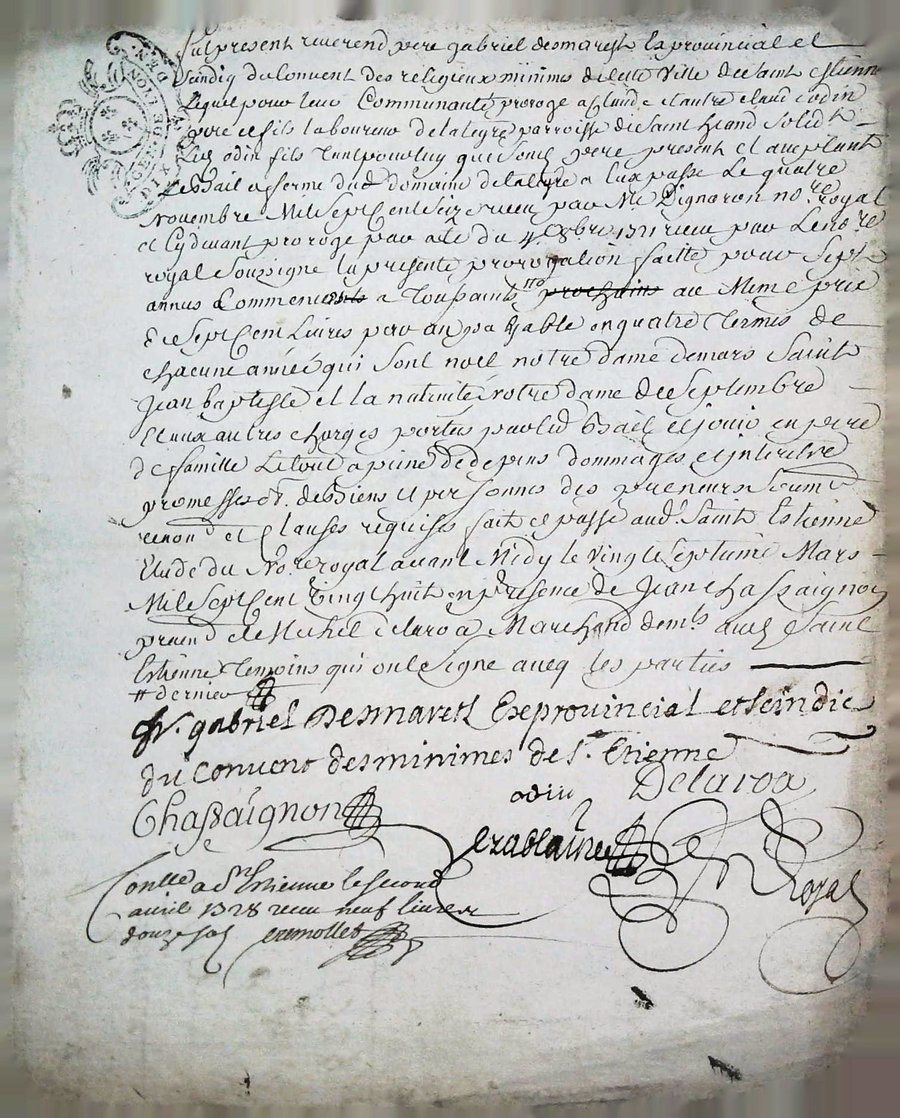 fut present reverend pere gabriel desmarest exprovincial et
scindiq du Convent des religieux minimes de cette Ville de Saint Estienne
Lequel pour leur Communauté proroge a Claude et autre Claude odin
pere et fils laboureur de la parroisse de Saint
odin fils pere present et acceptant
Le bail a ferme dud domaine a eux passé Le quatre
Novembre Mil Sept Cent Seize receu par Me Pignaron nore royal
et Cydevant prorogé par acte du 4e 8bre 1721 receu par Le nore
royal Soussigné la presente prorogation faitte pour Sept
annees a Toussaints au Meme prix
de Sept Cent Livres par an payable en quatre Termes de
chacune année qui sont noel notre dame de mars Saint
Jean baptiste et la nativité notre dame de Septembre
Et aux autres charges portées par led bail et jouir en pere
de famille Le tout a peine de depens dommages et interetz
promesses obt des biens et personnes des preneurs Soumis
renond et Clauses requises fait et passé aud Saint Estienne
Etude du Nore royal avant Midy le vingt Septieme Mars
Mil Sept Cent vingt huit en presence de Jean Chassaignon
pratid et Michel delaroa Marchand demts aud Saint
Estienne Temoins qui ont Signé avecq les parties
# dernier
fr. gabriel Desmarets Exprovincial et scindic
du Convent des minimes de st. Etienne
odin Delaroa
Chassaignon
Royal
Contllé a St Etienne le second
avril 1728 receu neuf livres
douze sols